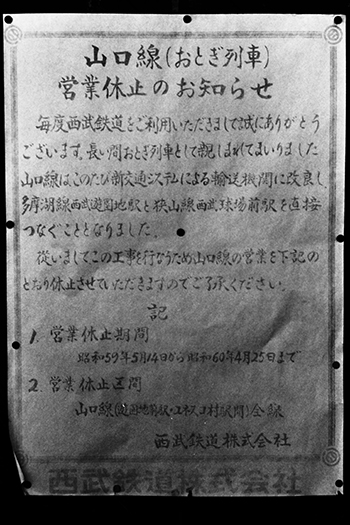 山口線(おとぎ列車)
営業休止のお知らせ
毎度西武鉄道をご利用いただきまして誠にありがとう
ございます。長い間おとぎ列車として親しまれてまいりました
山口線はこのたび新交通システムによる輸送機関に改良し
多摩湖線西武遊園地駅と狭山線西武球場前駅を直接
つなぐこととなりました。
従いましてこの工事を行なうため山口線の営業を下記の
とおり休止させていただきますのでご了承ください。
記
1. 営業休止期間
昭和59年5月14日から昭和60年4月25日まで
2. 営業休止区間
山口線(遊園地前駅・ユネスコ村駅間)全線
西武鉄道株式会社
西武鉄道株式会社